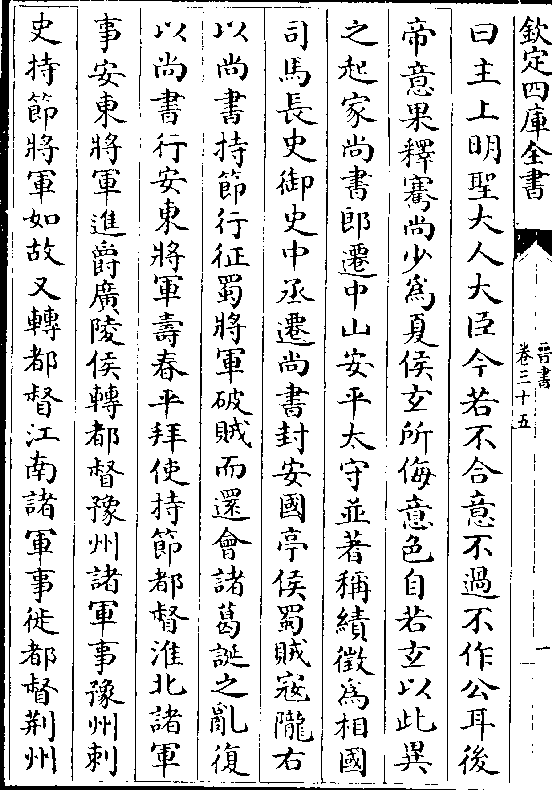 欽定四庫全書
晉書
卷三十五
一
曰主上明聖大人大臣今若不合意不過不作公耳後
帝意果釋騫尚少為夏侯玄所侮意色自若玄以此異
之起家尚書郎遷中山安平太守並著稱績徵為相國
司馬長史御史中丞遷尚書封安國亭侯蜀賊寇隴右
以尚書持節行征蜀將軍破賊而還會諸葛誕之亂復
以尚書行安東將軍壽春平拜使持節都督淮北諸軍
事安東將軍進爵廣陵侯轉都督豫州諸軍事豫州刺
史持節將軍如故又轉都督江南諸軍事徙都督荆州